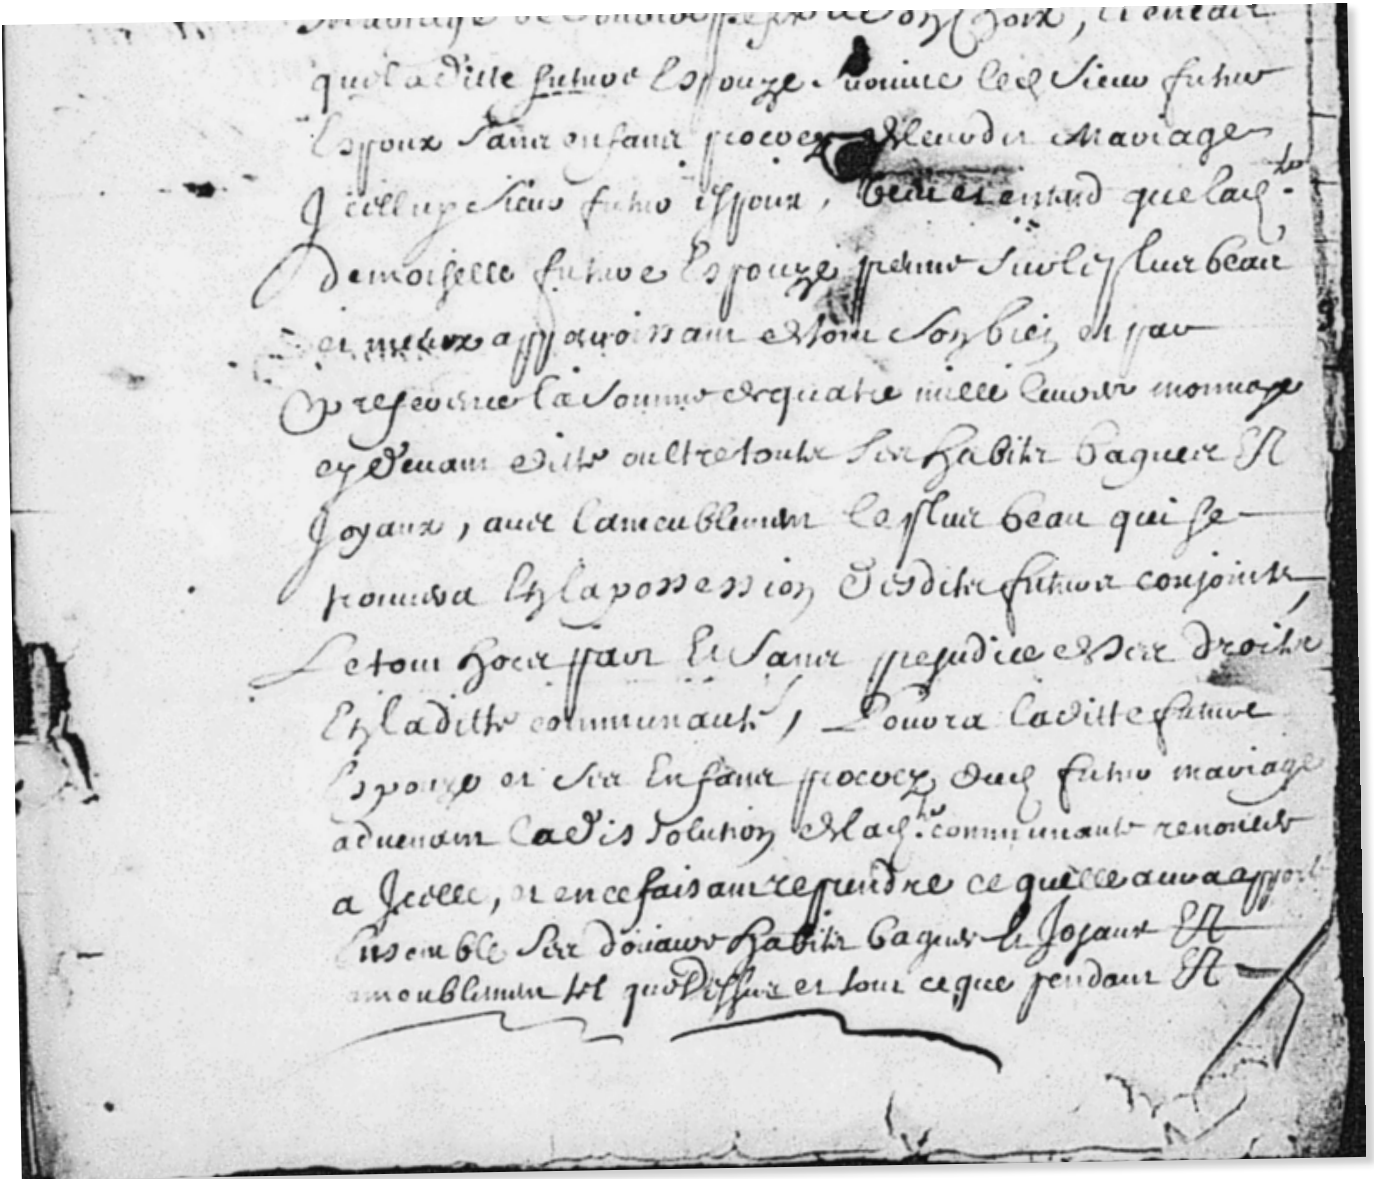 de son Choix, et en cas
que laditte future Espouze survive led Sieur futur
Espoux sans enfans procreez de leurdit Mariage
Jcelluy Sieur futur espoux, veut et entend que lad.te
demoiselle future Espouze prenne sur les plus beaux
et mieux apparoissant de tout son bien et par
preferance la somme de quatre mille livres monnoye
ey devant ditte oultre touts ses habits bagues Et
Joyaux, avec lameublement le plus beau qui se
trouvera En la possession desdits futurs conjoints,
Le tout hors part Et sans prejudice de ses droits
En laditte communauté, Poura laditte future
Espouze et ses Enfans procreez dud futur mariage
advenant la dissolution de lad.te communauté renoncer
a Jcelle, et en ce faisant reprendre ce quelle aura apporté
Ensemble ses douaire habits bagues Et Joyaux Et
ameublement tel que dessus et tout ce que pendant Et